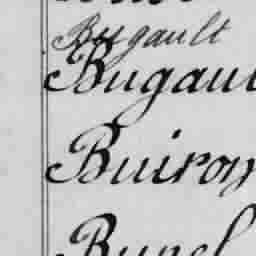 Bugault
Bugau
Buiron
Bunel